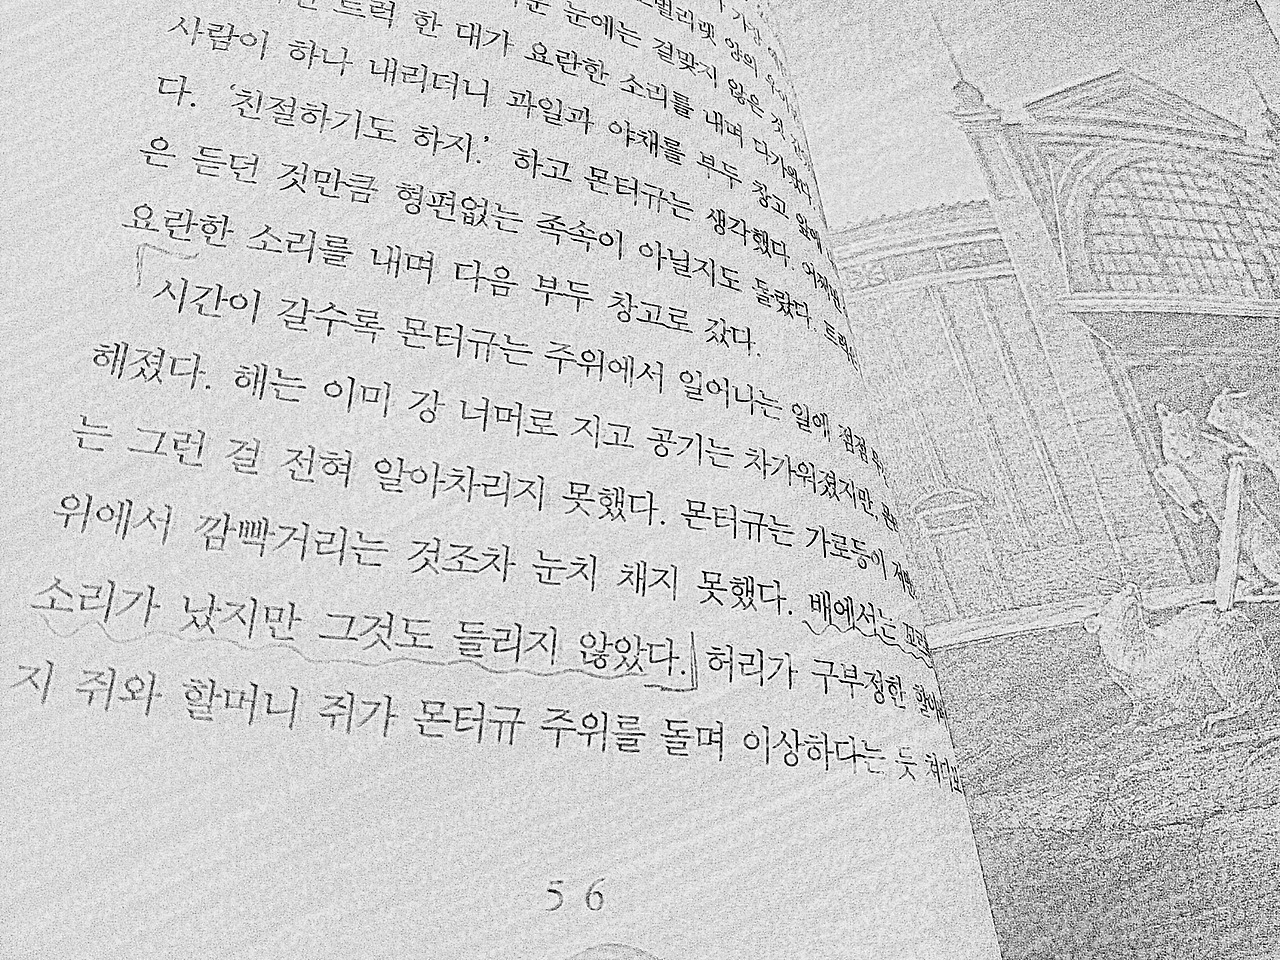 트럭 한 대가 요란한 소리를 내며 다가왔다
사람이 하나 내리더니 과일과 야채를 부두 창고 앞에
다. '친절하기도 하지.' 하고 몬터규는 생각했다.
은 듣던 것만큼 형편없는 족속이 아닐지도 몰랐다. 트럭은
요란한 소리를 내며 다음 부두 창고로 갔다.
시간이 갈수록 몬터규는 주위에서 일어나는 일에 점점
해졌다. 해는 이미 강 너머로 지고 공기는 차가워졌지만,
는 그런 걸 전혀 알아차리지 못했다. 몬터규는 가로등이
위에서 깜빡거리는 것조차 눈치 채지 못했다. 배에서는
소리가 났지만 그것도 들리지 않았다. 허리가 구부정한
지 쥐와 할머니 쥐가 몬터규 주위를 돌며 이상하다는 듯
56